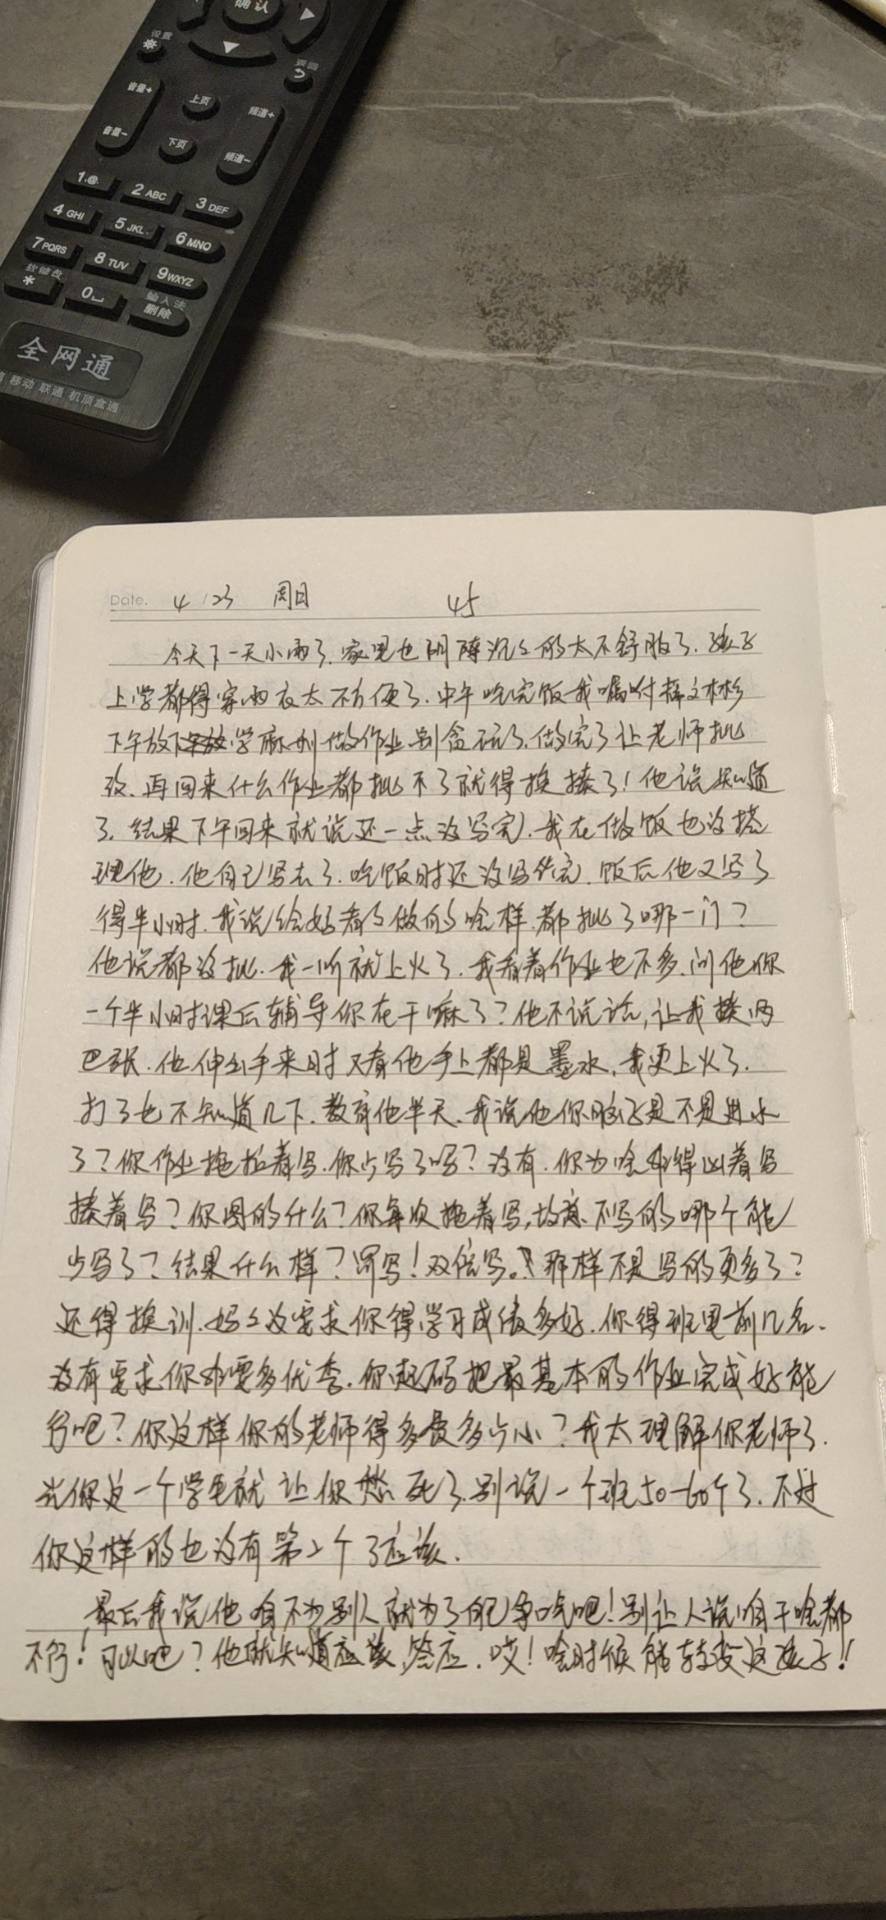 确认
设置
音量+
上页
频道+
音量-
下页
频道-
1.@
2 ABC
3 DEF
4 GHI
5 JKL
6 MNO
7 PQRS
8 TUV
9 WXYZ
*
0
输入法
删除
全网通
移动 联通 机顶盒通
Date. 4/23 周日 45
今天下一天小雨了.家里也阴阵沉々的太不舒服了.孩子
上学都得穿雨衣太不方便了.中午吃完饭我嘱咐
下午放学麻利做作业别贪玩了.做完了让老师批
改.再回来什么作业都批不了就得挨揍了!他说知道
了.结果下午回来就说还一点没写完.我在做饭也没搭
理他.他自己写去了.吃饭时还没写完.饭后他又写了
得半小时.我说给妈看看做的啥样.都批了哪一门?
他说都没批.我一听就上火了.我看着作业也不多.问他你
一个半小时课后辅导你在干嘛了?他不说话,让我揍两
巴张.他伸出手来时又看他手上都是墨水,我更上火了.
打了也不知道几下.教育他半天.我说他你脑子是不是进水
了?你作业拖拉着写.你少写了吗?没有.你为啥非得凶着写
揍着写?你图的什么?你每次拖着写,故意不写的哪个能
少写了?结果什么样?罚写!双倍写。那样不是写的更多了?
还得挨训.妈々没要求你得学习成绩多好.你得班里前几名.
没有要求你非要多优秀.你起码把最基本的作业完成好能
行吧?你这样你的老师得多费多少心?我太理解你老师了.
光你这一个学生就让你愁死了.别说一个班50-60个了.不过
你这样的也没有第2个了应该.
最后我说他咱不为别人就为了自己争口气吧!别让人说咱干啥都
不行!可以吧?他就知道应该,答应.哎!啥时候能转变这孩子!!